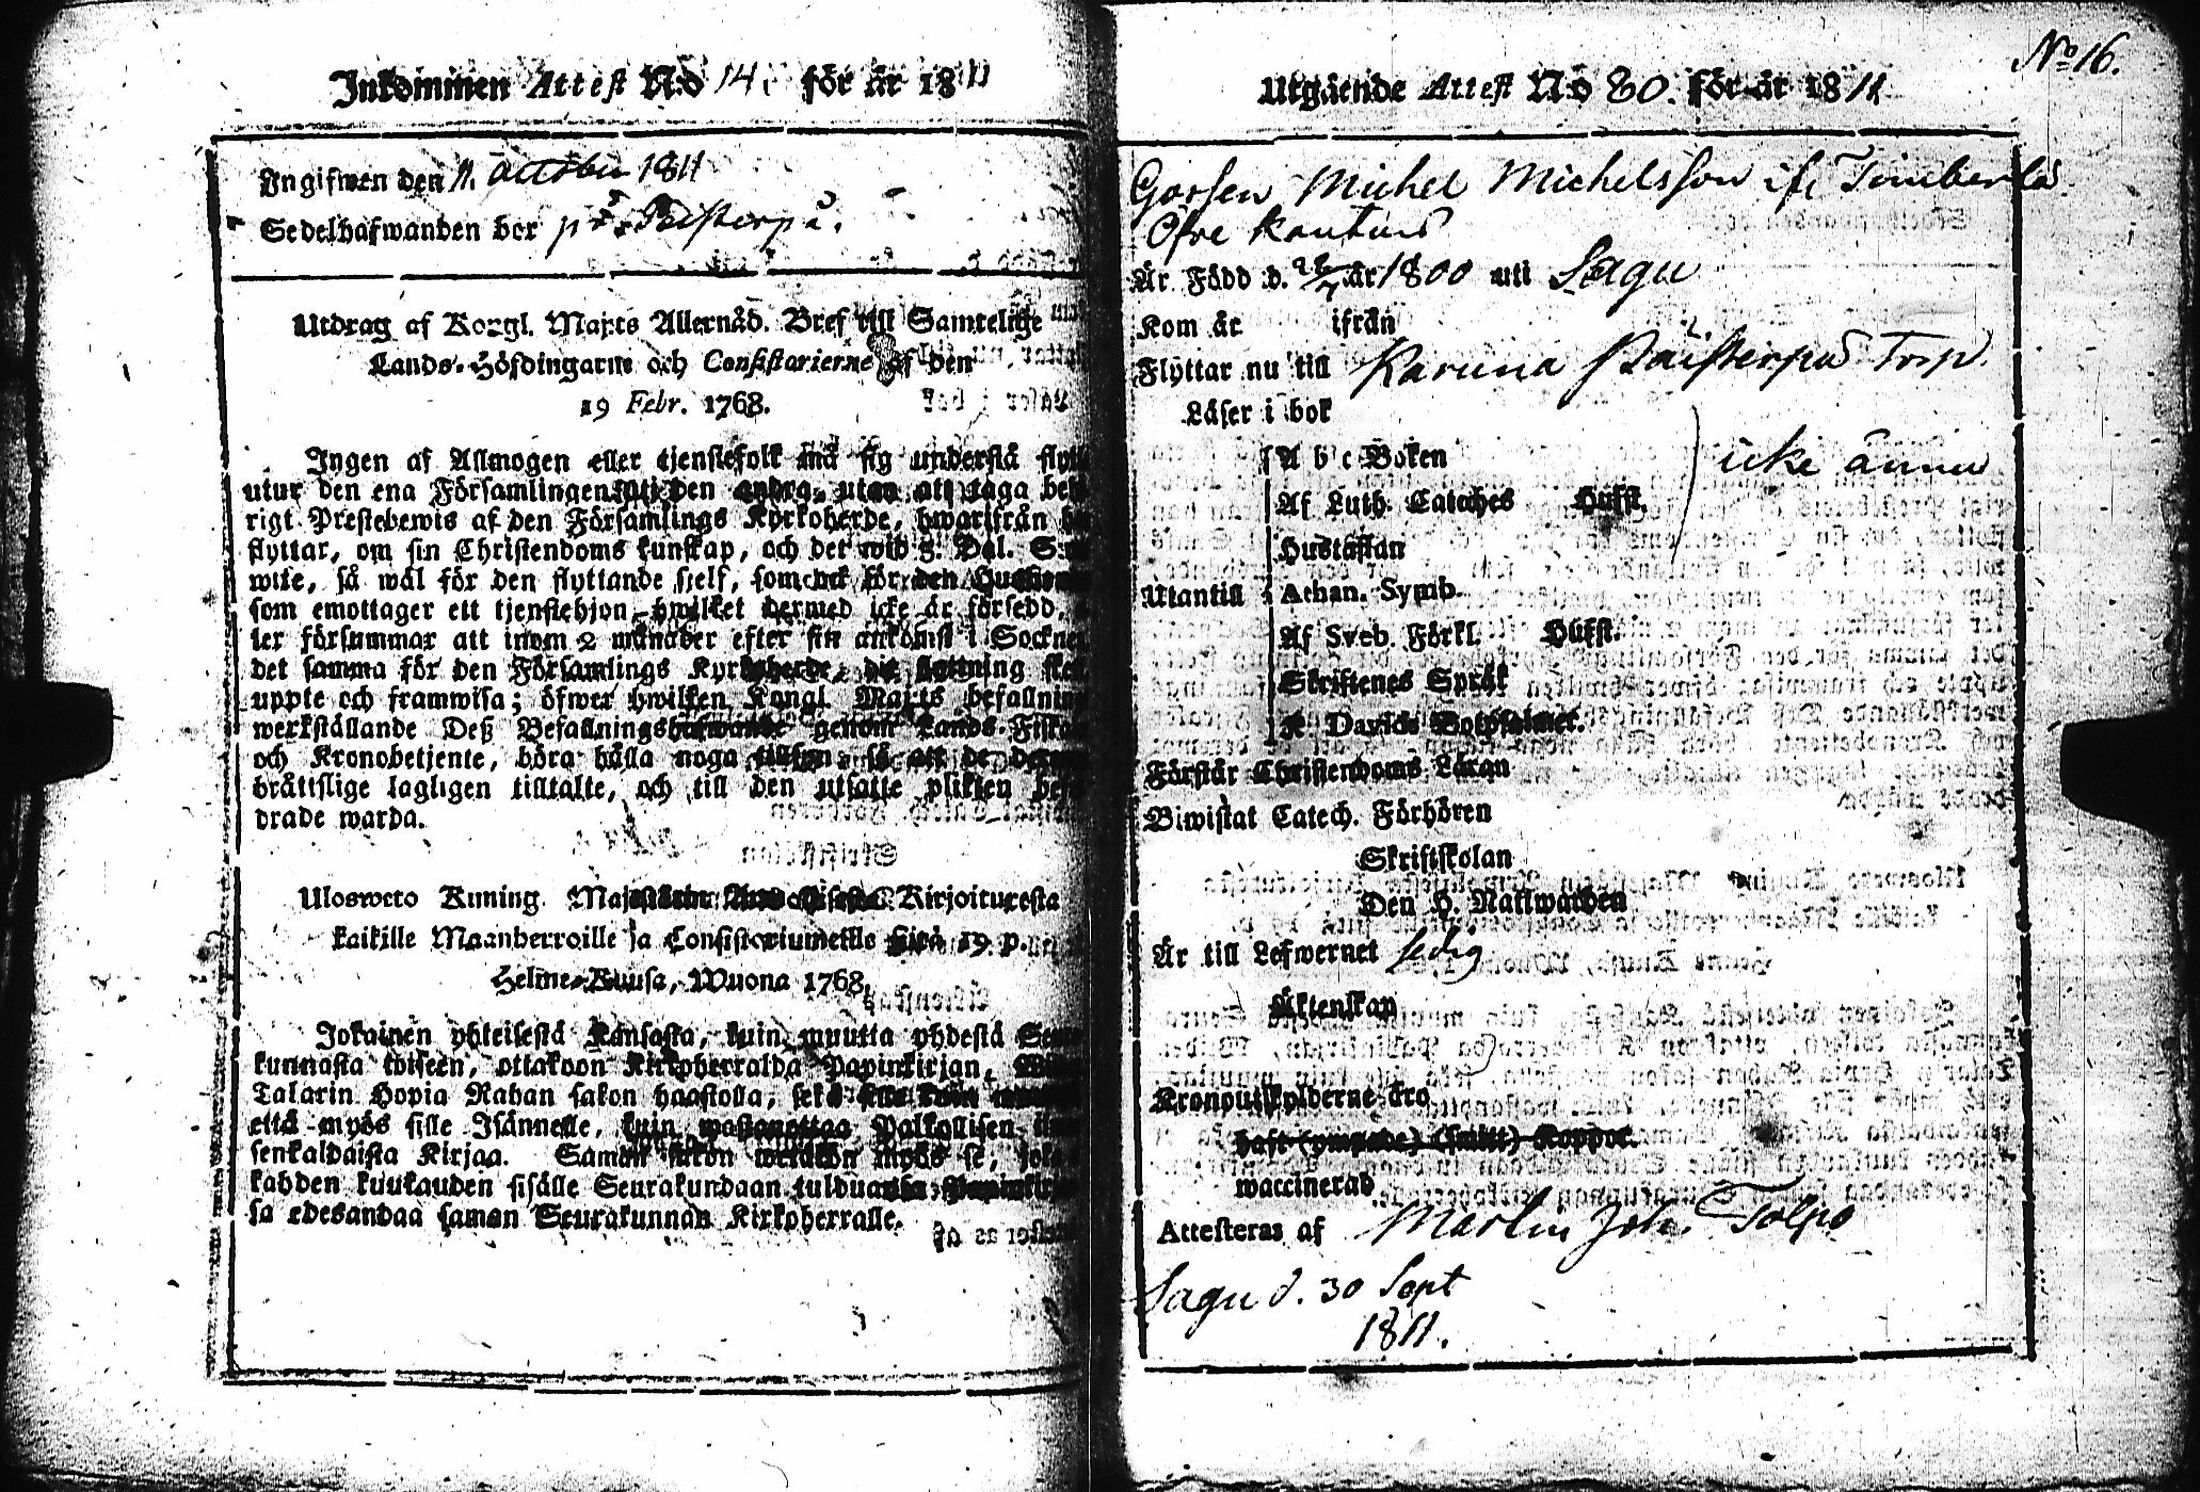 Inkommen Attest N:o 14. för år 1811
Ingifwen den 11. October 1811
Sedelhafwanden bor på Päisterpä.
Utdrag af Kongl. Maj:ts Allernåd. Bref till Samtelige
Lands-Höfdingarne och Consistorierne af den
19 Febr. 1768.
Ingen af Allmogen eller tjenstefolk må sig understå
utur den ena Församlingen uti den andra, utan att taga
rigt Prestebewis af den Församlings Kyrkoherde, hwarifrån
flyttar, om sin Christendoms kunskap, och det wid 5. Dal. S:mt
wite, så wäl för den flyttande sjelf, som ock för den
som emottager ett tjenstehjon, hwilket dermed icke är försedd,
ler försummar att inom 2 månader efter sin ankomst i
det samma för den Församlings Kyrkoherde, dit flyttning
uppte och framwisa; öfwer hwilken Kongl Maj:ts
werkställande Deß Befallningshafwande genom Lands-
och Kronobetjente, böra hålla noga tillsyn så att de
bråttslige lagligen tilltalte, och till den utsatte plikten
drade warda.
Ulosweto Kuning. Kirjoituxesta
kaikille Maanherroille ja Consistoriumeille siitä 19. p.
Helme-Kuusa, Wuona 1768.
Jokainen yhteisestä Kansasta, kuin muutta yhdestä
kunnasta toiseen, ottakoon Kirkoherralda Papinkirjan,
Talarin Hopia Rahan sakon haastolla, sekä
että myös sille Isännelle, kuin wastanottaa Palkollisen
senkaldaista Kirjaa. Saman sakon wetäkön myös se,
kahden kuukauden sisälle Seurakundaan tulduansa
sa edesandaa saman Seurakunnan Kirkoherralle.
No 16.
Utgående Attest N:o 80. för år 1811
Gossen Michel Michelsson ifr Timberla
Öfre
Är Född d. år 1800 uti Sagu
Kom år ifrån
Flyttar nu till Karuna Päisterpä Torp.
Läser i bok
A b c Boken icke ännu
Af Luth. Cateches Hufst.
Hustaflan
Utantill Athan. Symb.
Af Sveb. Förkl. Hufst.
Skriftenes Språk
K Davids Botpsalmer.
Förstår Christendoms Läran
Biwistat Catech. Förhören
Skriftskolan
Den H. Nattwarden
Är till Lefwernet sedig
Äktenskap
Kronoutskylderne äro
haft (ympade) (smitt) Koppor.
waccinerad
Attesteras af Martin Joh. Tolpo
Sagu d. 30 Sept
1811.